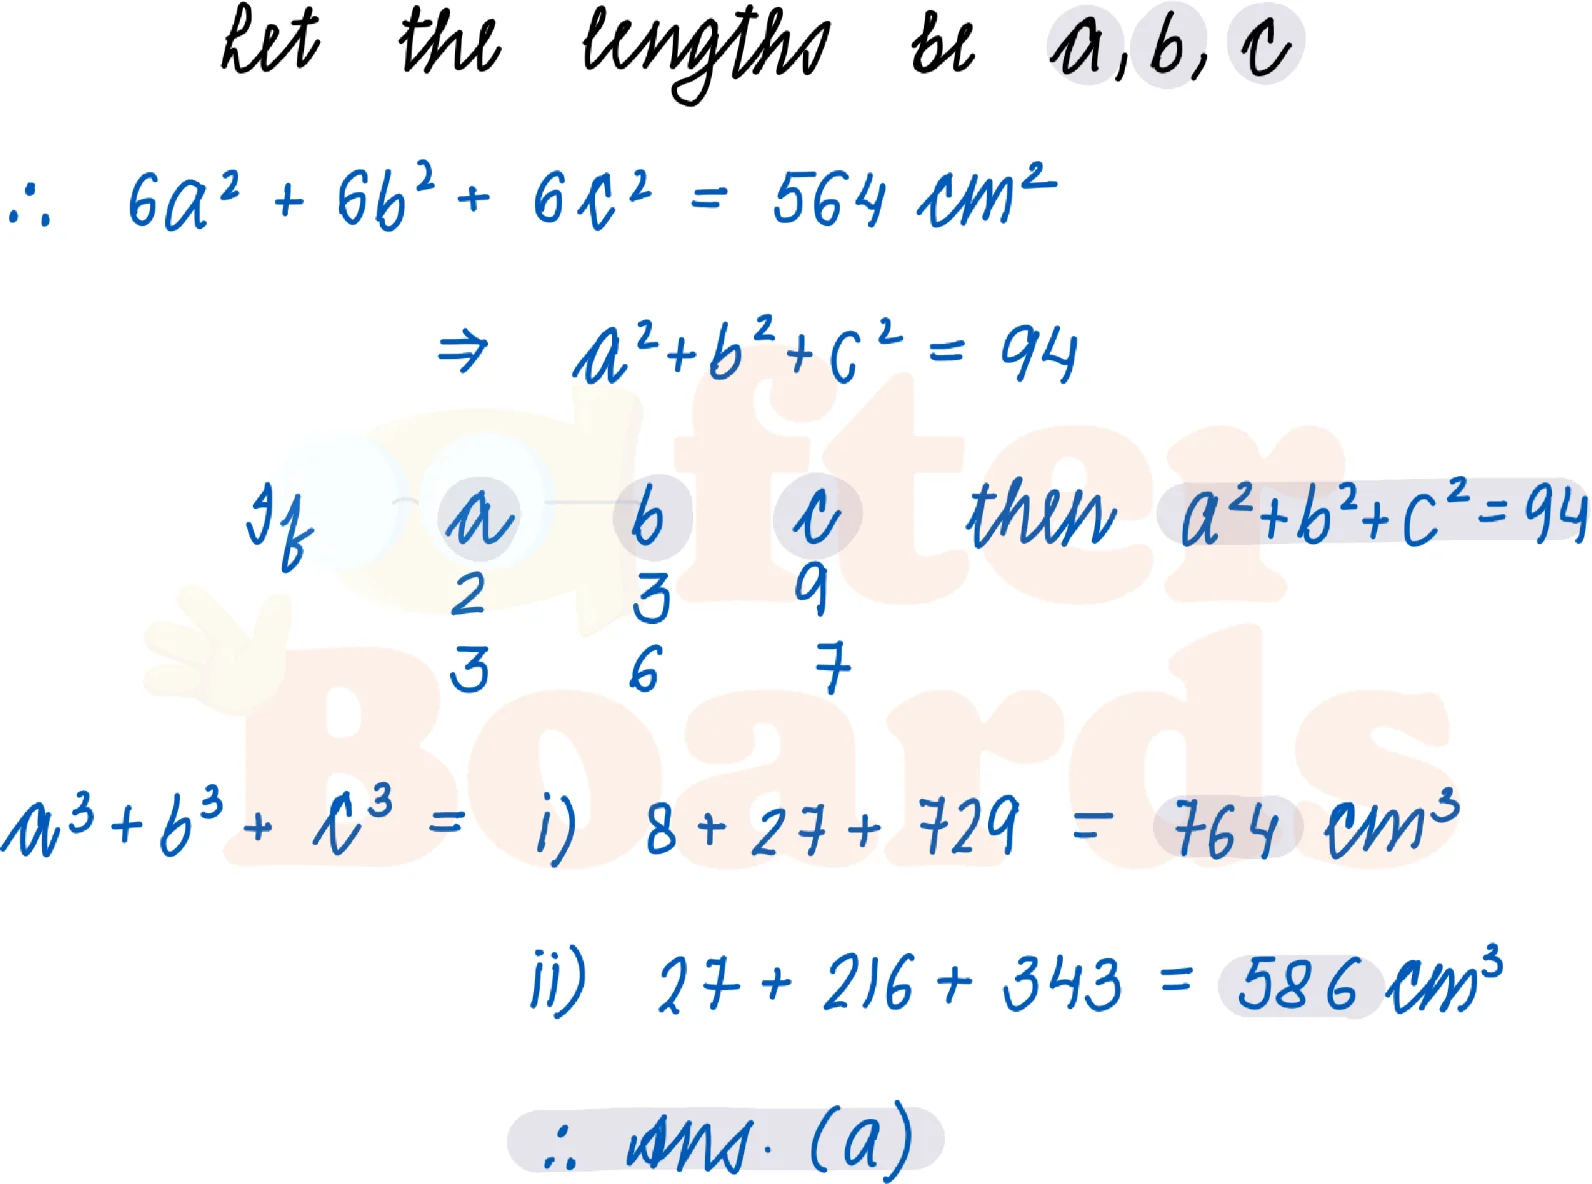 Let the lengths be a, b, c
∴ 6a² + 6b² + 6c² = 564 cm²
⇒ a² + b² + c² = 94
If a b c then a² + b² + c² = 94
2 3 9
3 6 7
a³ + b³ + c³ = i) 8 + 27 + 729 = 764 cm³
ii) 27 + 216 + 343 = 586 cm³
∴ Ans. (a)
after
Boards